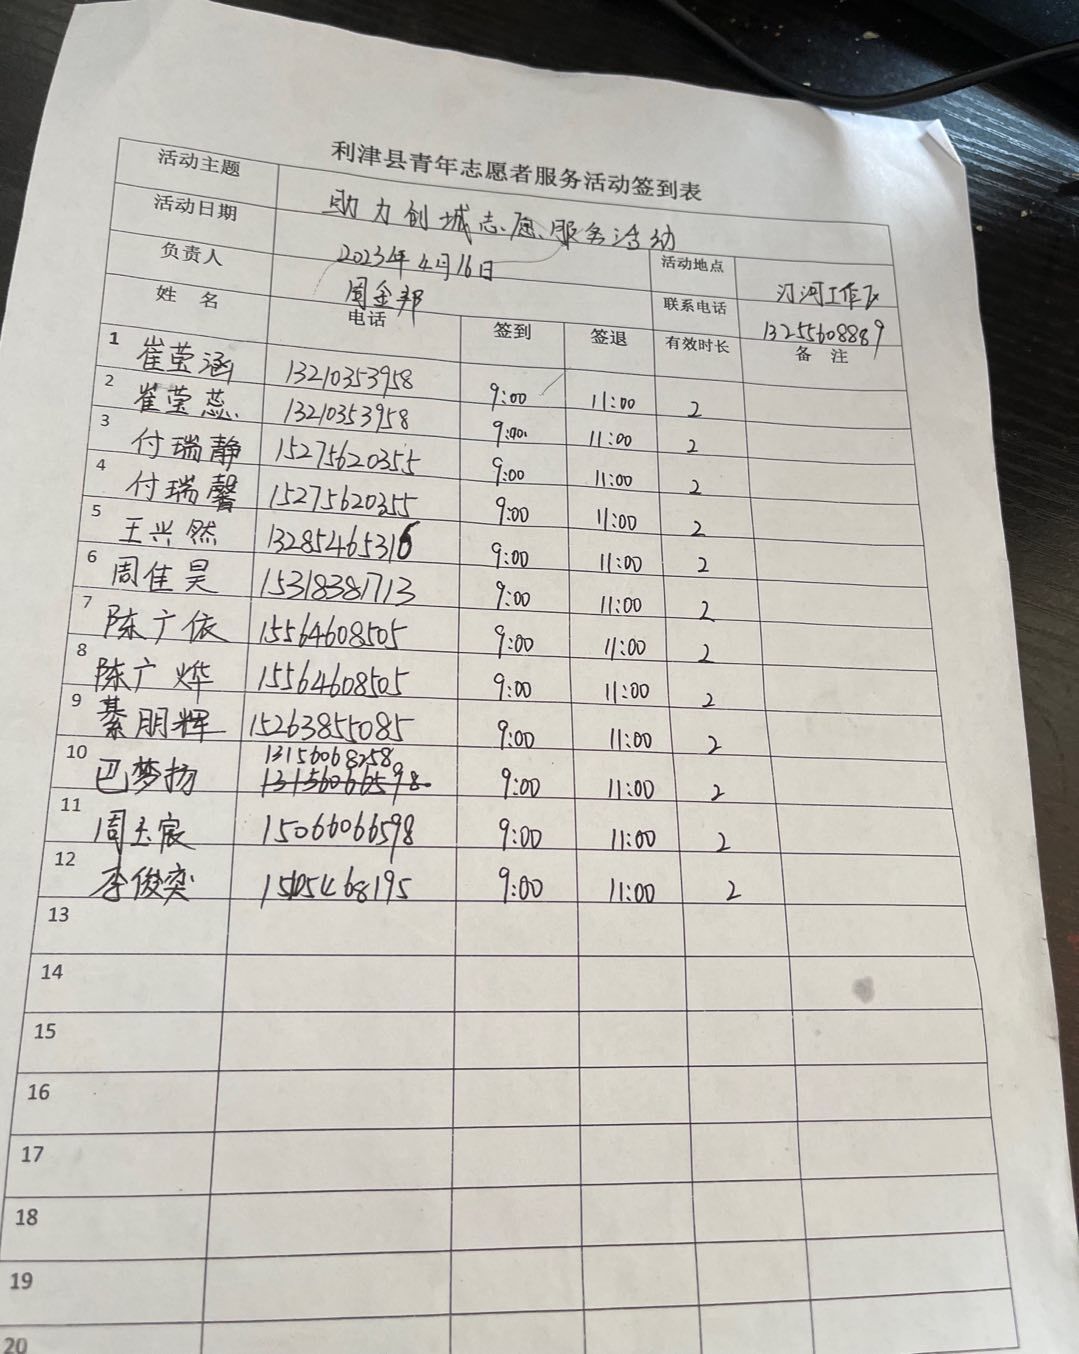 利津县青年志愿者服务活动签到表
活动主题 助力创城志愿服务活动
活动日期 2023年4月16日 活动地点 汀河工作区
负责人 周金邦 联系电话 13255608889
姓 名 电话 签到 签退 有效时长 备 注
1 崔莹涵 13210353958 9:00 11:00 2
2 崔莹蕊 13210353958 9:00 11:00 2
3 付瑞静 15275620355 9:00 11:00 2
4 付瑞馨 15275620355 9:00 11:00 2
5 王兴然 13285465316 9:00 11:00 2
6 周佳昊 15318381713 9:00 11:00 2
7 陈广依 15564608505 9:00 11:00 2
8 陈广烨 15564608505 9:00 11:00 2
9 綦朋辉 15263855085 9:00 11:00 2
13156068258
10 巴梦扬 13156066598 9:00 11:00 2
11 周玉宸 15066066598 9:00 11:00 2
12 李俊奕 9:00 11:00 2
13
14
15
16
17
18
19
20